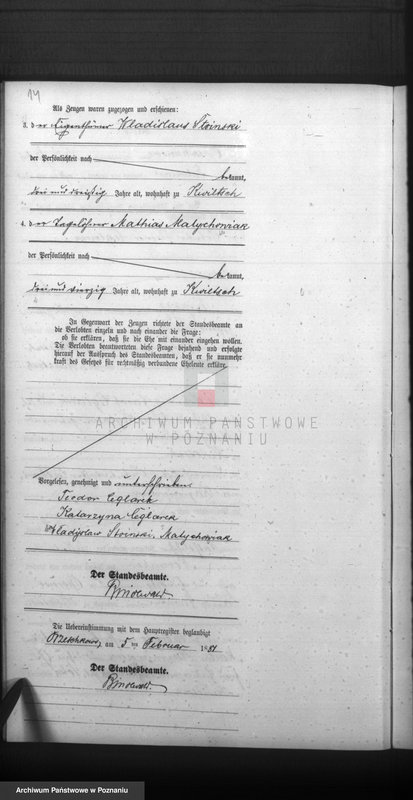 14
Als Zeugen waren zugezogen und erschienen:
3. der Eigenthümer Wladislaus Stoinski
der Persönlichkeit nach
bekannt,
drei und dreißig Jahre alt, wohnhaft zu Kwiltsch
4. der Tagelöhner Mathias Matychowiak
der Persönlichkeit nach
bekannt,
drei und vierzig Jahre alt, wohnhaft zu Kwiltsch
In Gegenwart der Zeugen richtete der Standesbeamte an
die Verlobten einzeln und nach einander die Frage:
ob sie erklären, daß sie die Ehe mit einander eingehen wollen.
Die Verlobten beantworteten diese Frage bejahend und erfolgte
hierauf der Ausspruch des Standesbeamten, daß er sie nunmehr
kraft des Gesetzes für rechtmäßig verbundene Eheleute erkläre.
ARCHIWUM PAŃSTWOWE
W POZNANIU
Vorgelesen, genehmigt und unterschrieben
Teodor Ceglarek
Katarzyna Ceglarek
Władysław Stoinski. Matychowiak
Der Standesbeamte.
Die Uebereinstimmung mit dem Hauptregister beglaubigt
am 5 ten Februar 1881
Der Standesbeamte.
Archiwum Państwowe w Poznaniu